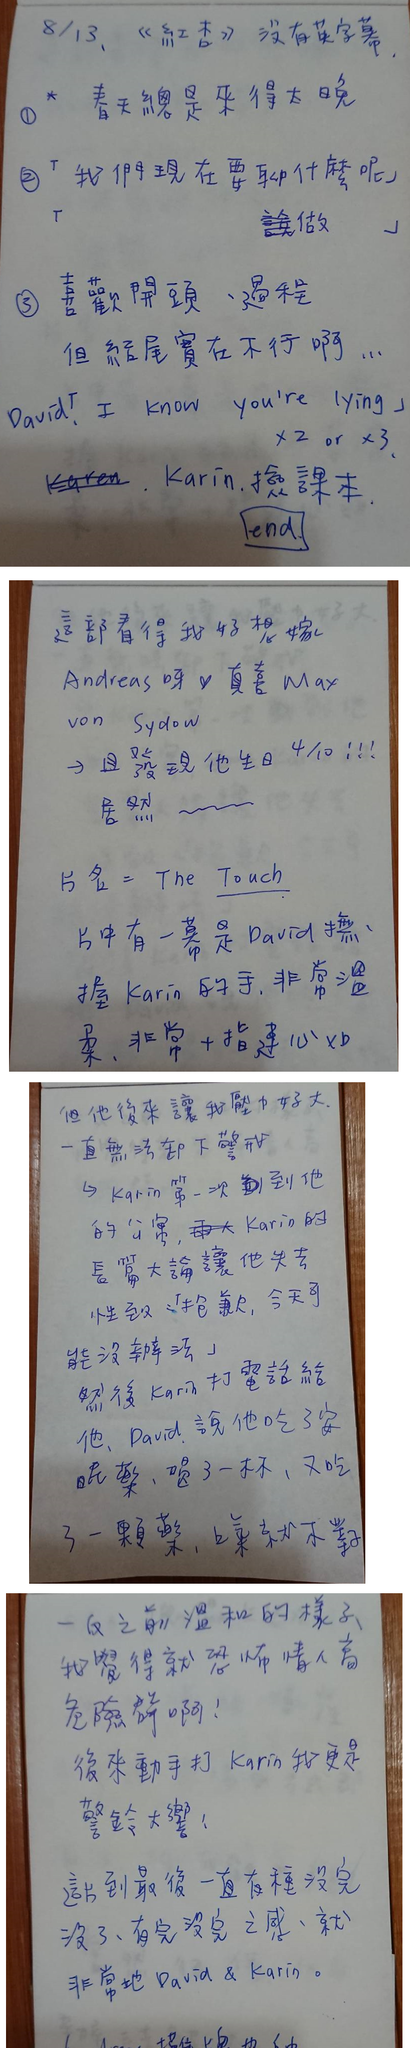 8/13、《紅杏》 沒有英字幕.
① * 春天總是來得太晚
② 「我們現在要聊什麼呢」
「 該做 」
③ 喜歡開頭、過程
但結尾實在不行啊...
David:「I know you're lying」
x2 or x3.
Karen . Karin. 撿課本.
end.
這部看得我好想嫁
Andreas 呀♡ 真喜 Max
von Sydow
→ 且發現他生日 4/10 !!!
居然
片名 = The Touch
片中有一幕是 David 撫、
握 Karin 的手, 非常溫
柔、非常 十指連心 XD
但他後來讓我壓力好大.
一直無法卸下警戒
↳ Karin 第一次到他
的公寓, Karin 的
長篇大論讓他失去
性致「抱歉, 今天可
能沒辦法」
然後 Karin 打電話給
他, David 說他吃了安
眠藥、喝了一杯、又吃
了一顆藥, 口氣就不對
一反之前溫和的樣子、
我覺得就恐怖情人高
危險群啊!
後來動手打 Karin 我更是
警鈴大響!
這片到最後一直有種沒完
沒了、有完沒完之感、就
非常地 David & Karin。